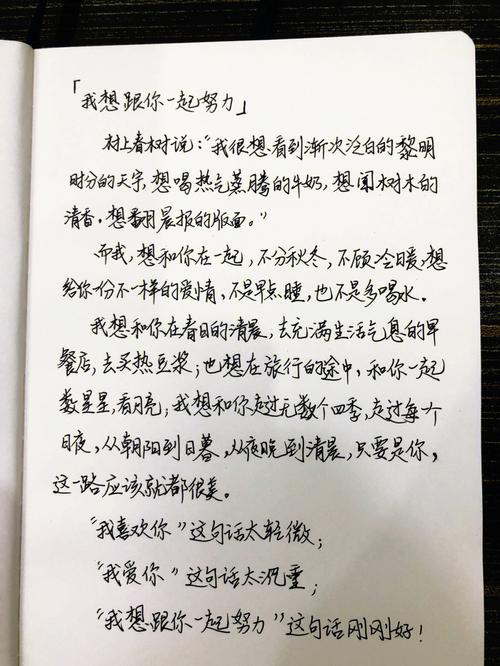 「我想跟你一起努力」
村上春树说:“我很想看到渐次泛白的黎明
时分的天宇,想喝热气蒸腾的牛奶,想闻树木的
清香,想翻晨报的版面。”
而我,想和你在一起,不分秋冬,不顾冷暖,想
给你一份不一样的爱情,不是早点睡,也不是多喝水。
我想和你在春日的清晨,去充满生活气息的早
餐店,去买热豆浆;也想在旅行的途中,和你一起
数星星,看月亮;我想和你走过无数个四季,走过每一个
日夜,从朝阳到日暮,从夜晚到清晨,只要是你,
这一路应该就都很美。
“我喜欢你”这句话太轻微;
“我爱你”这句话太沉重;
“我想跟你一起努力”这句话刚刚好!